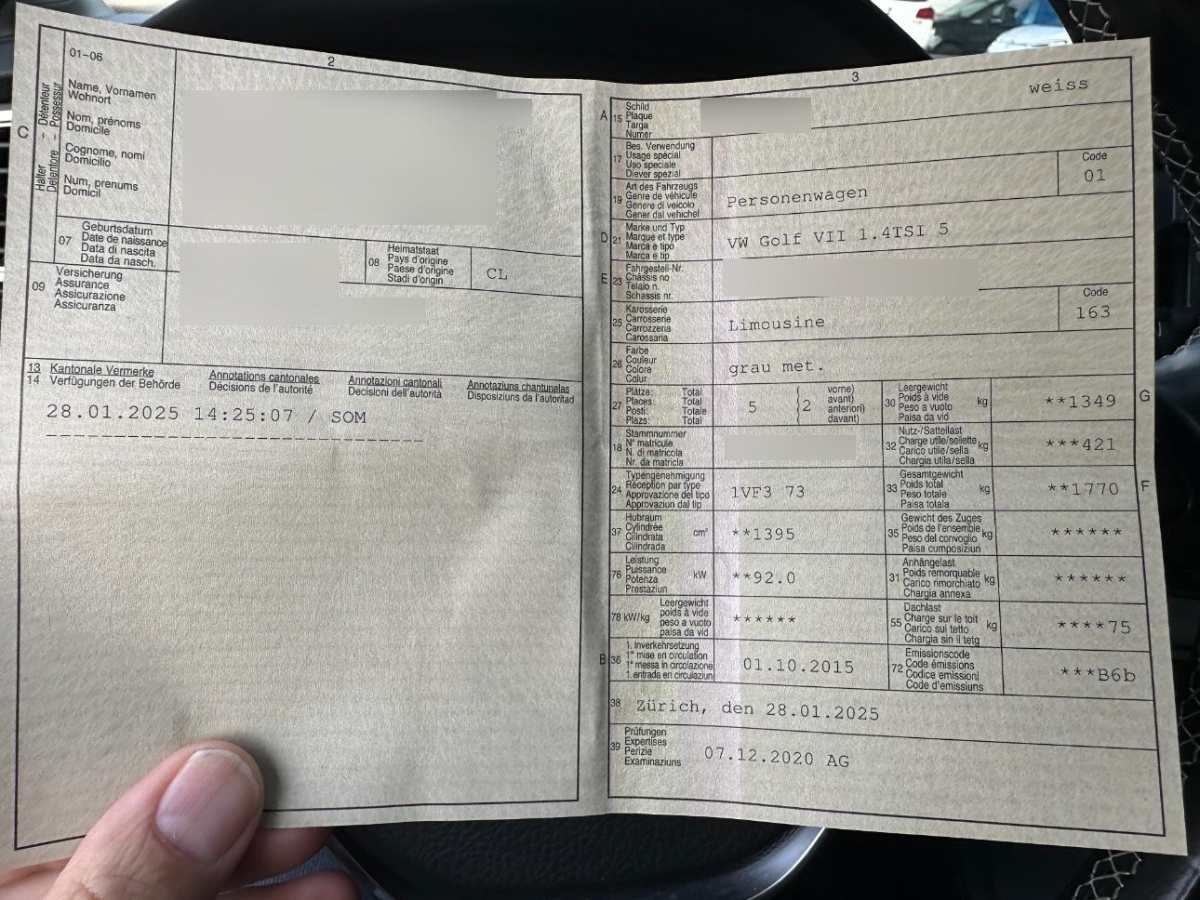 2
01-06
C
Halter - Détenteur
Detentore - Possessur
Name, Vornamen
Wohnort
Nom, prénoms
Domicile
Cognome, nomi
Domicilio
Num, prenums
Domicil
07
Geburtsdatum
Date de naissance
Data di nascita
Data da nasch.
08
Heimatstaat
Pays d'origine
Paese d'origine
Stadi d'origin
CL
09
Versicherung
Assurance
Assicurazione
Assicuranza
13 Kantonale Vermerke Annotations cantonales Annotazioni cantonali Annotaziuns chantunalas
14 Verfügungen der Behörde Décisions de l'autorité Decisioni dell'autorità Disposiziuns da l'autoritad
28.01.2025 14:25:07 / SOM
3
A 15
Schild
Plaque
Targa
Numer
weiss
17
Bes. Verwendung
Usage spécial
Uso speciale
Diever spezial
19
Art des Fahrzeugs
Genre de véhicule
Genere di veicolo
Gener dal vehichel
Personenwagen
Code
01
D 21
Marke und Typ
Marque et type
Marca e tipo
Marca e tip
VW Golf VII 1.4TSI 5
E 23
Fahrgestell-Nr.
Châssis no
Telaio n.
Schassis nr.
25
Karosserie
Carrosserie
Carrozzeria
Carossaria
Limousine
Code
163
26
Farbe
Couleur
Colore
Calur
grau met.
27
Plätze: Total
Places: Total
Posti: Totale
Plazs: Total
5
2
vorne)
avant)
anteriori)
davant)
30
Leergewicht
Poids à vide kg
Peso a vuoto
Paisa da vid
**1349
G
18
Stammnummer
N° matricule
N. di matricola
Nr. da matricla
32
Nutz-/Sattellast
Charge utile/sellette kg
Carico utile/sella
Chargia utila/sella
***421
24
Typengenehmigung
Réception par type
Approvazione del tipo
Approvaziun dal tip
1VF3 73
33
Gesamtgewicht
Poids total kg
Peso totale
Paisa totala
**1770
F
37
Hubraum
Cylindrée cm³
Cilindrata
Cilindrada
**1395
35
Gewicht des Zuges
Poids de l'ensemble kg
Peso del convoglio
Paisa cumposiziun
******
76
Leistung
Puissance kW
Potenza
Prestaziun
**92.0
31
Anhängelast
Poids remorquable kg
Carico rimorchiato
Chargia annexa
******
78 kW/kg
Leergewicht
poids à vide
peso a vuoto
paisa da vid
******
55
Dachlast
Charge sur le toit kg
Carico sul tetto
Chargia sin il tetg
****75
B 36
1. Inverkehrsetzung
1re mise en circulation
1a messa in circolazione
1. entrada en circulaziun
01.10.2015
72
Emissionscode
Code émissions
Codice emissioni
Code d'emissiuns
***B6b
38 Zürich, den 28.01.2025
39
Prüfungen
Expertises
Perizie
Examinaziuns
07.12.2020 AG